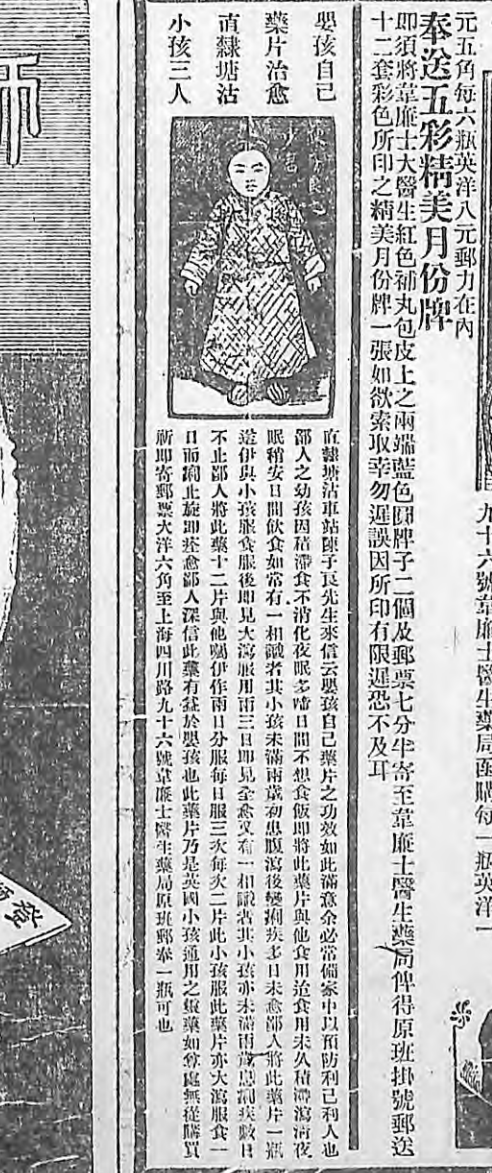 元五角每六瓶英洋八元郵力在內
奉送五彩精美月份牌
即須將韋廉士大醫生紅色補丸包皮上之兩端藍色圓牌子二個及郵票七分半寄至韋廉士醫生藥局俾得原班掛號郵送
十二套彩色所印之精美月份牌一張如欲索取幸勿遲誤因所印有限遲恐不及耳
九十六號韋廉士醫生藥局函購每一瓶英洋一
嬰孩自己
藥片治愈
直隸塘沽
小孩三人
直隸塘沽車站陳子良先生來信云嬰孩自己藥片之功效如此滿意余必常備家中以預防利己利人也
鄙人之幼孩因積滯食不消化夜眠多啼日間不想食飯即將此藥片與他食用迨食用未久積滯瀉清夜
眠稍安日間飲食如常有一相識者其小孩未滿兩歲初患腹瀉後變痢疾多日未愈鄙人將此藥片一瓶
送伊與小孩服食服後即見大瀉服用兩三日即見全愈又有一相識者其小孩亦未滿兩歲患痢疾數日
不止鄙人將此藥十二片與他囑伊作兩日分服每日服三次每次二片此小孩服此藥片亦大瀉服食一
日而痢止旋即痊愈鄙人深信此藥有益於嬰孩也此藥片乃是英國小孩通用之靈藥如尊處無從購買
祈即寄郵票大洋六角至上海四川路九十六號韋廉士醫生藥局原班郵奉一瓶可也
師